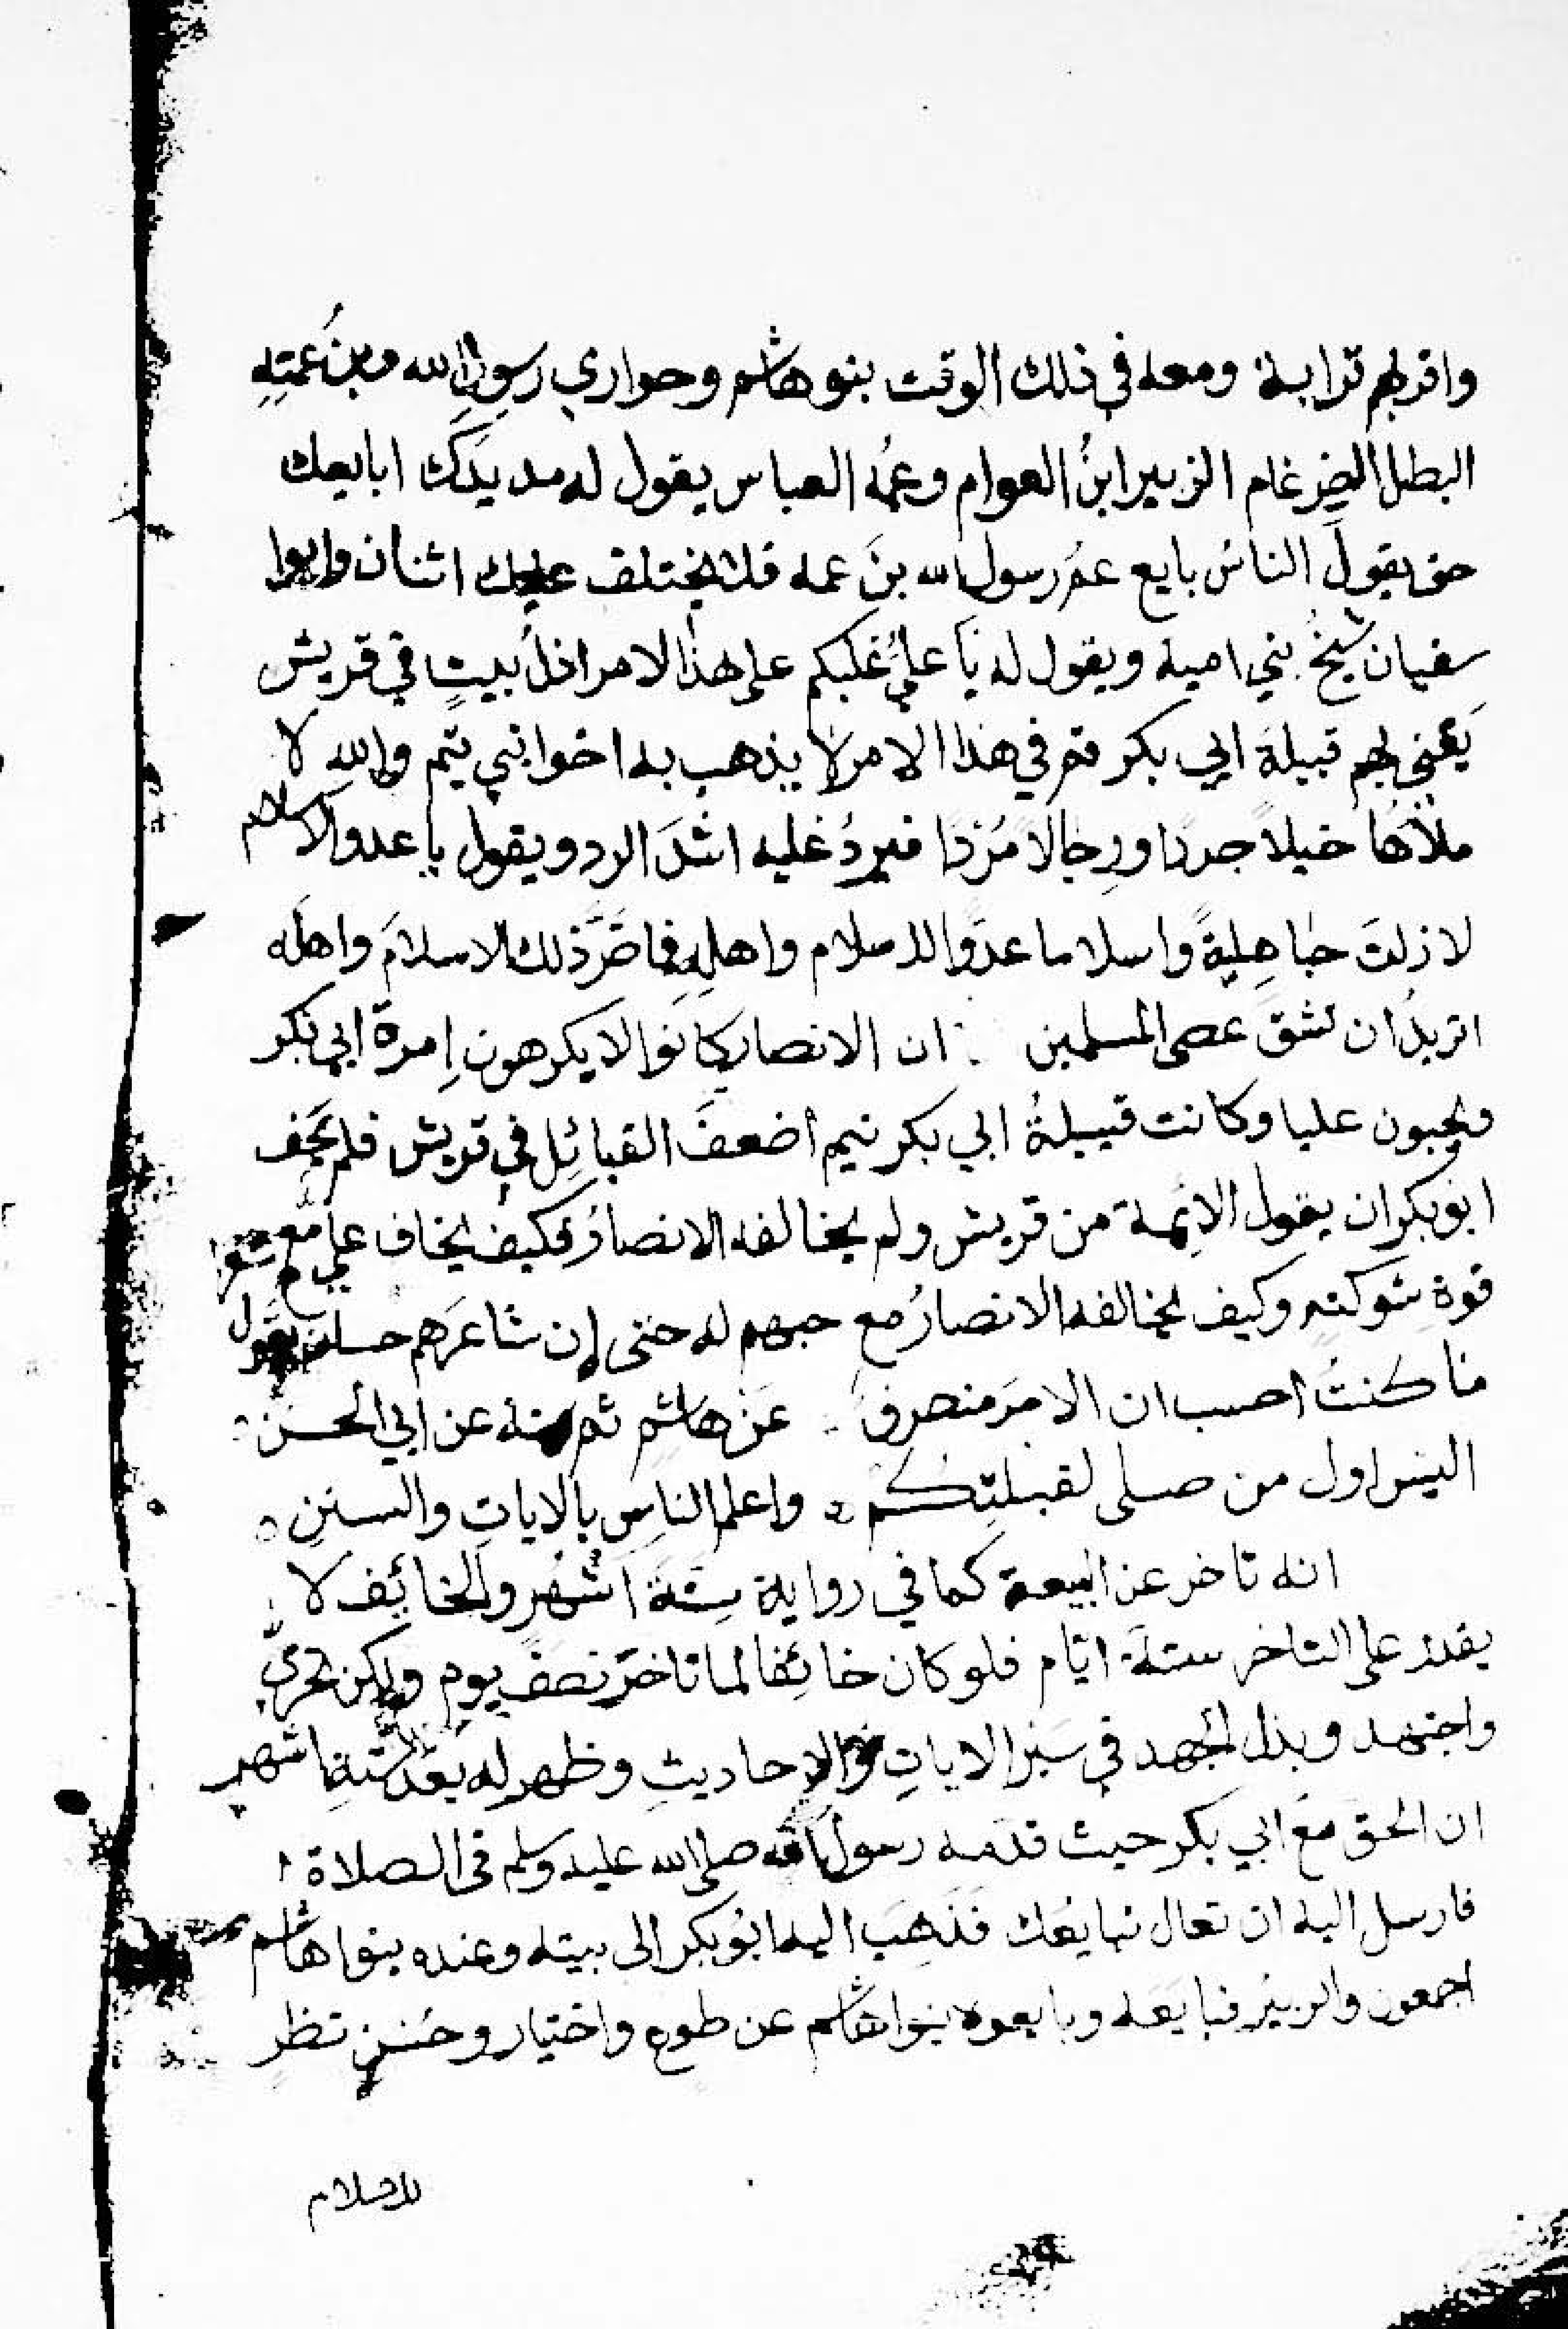 واقربهم قرابة ومعه في ذلك الوقت بنو هاشم وحواري رسول الله وبن عمتِهِ
البطل الضرغام الزبير ابنُ العوام وعمُه العباس يقول له مد يدَك ابايعك
حتى يقولَ الناسُ بايع عمُ رسول الله بنَ عمه فلا يختلف عليك اثنان وابوا
سفيان شيخُ بني امية ويقول له يَا عليُ غلبكم على هذا الامر اذلُ بيتٍ في قريش
يَعني بهم قبيلة ابي بكر قم في هذا الامر لا يذهب به اخوا بني تيم واللهِ لا
ملأنها خيلا جردًا ورجالا مُردًا فيردُ عليه اشدَ الرد ويقول يا عدو الاسلام
لا زلتَ جاهليةً واسلاما عدوًا للاسلام واهلِهِ فما ضَرَّ ذلك الاسلامَ واهلَه
اتريدُ ان تشق عصى المسلمين ان الانصار كانوا لا يكرهون اِمرة ابي بكر
ويحبون عليا وكانت قبيلةُ ابي بكر تيم أضعفَ القبائِل في قريش فلم يَخف
ابو بكر ان يقول الائمة من قريش ولم يخالفه الانصارُ فكيف يخاف علي مع
قوة شوكته وكيف يخالفه الانصارُ مع حبهم له حتى إن شاعرَهم حسان يقول
ما كنتُ أحسب ان الامرَ منصرف عَن هاشم ثم منه عن ابي الحسن
اليس اول من صلى لقبلتِكم واعلم الناسِ بالاياتِ والسننِ
انه تاخر عن البيعة كما في رواية سِتةَ اشهُر والخائِف لا
يقدر على التاخر ستةَ ايّام فلو كان خائِفا لما تاخر نصفَ يومٍ ولكن تحرى
واجتهد وبذل الجهد في سَبر الاياتِ والاحاديثِ وظهر له بَعد الستةِ اشهر
ان الحقَ مع ابي بكر حيث قدمه رسول الله صلى الله عليه وسلم في الصلاة
فارسل اليه ان تعال نبايعك فذهَب اليه ابُو بكر الى بيته وعنده بنوا هاشم
اجمعون والزبيرُ فبايَعه وبايعوه بنوا هاشم عن طوع واختيار وحُسنِ نظرِ
للاسلام